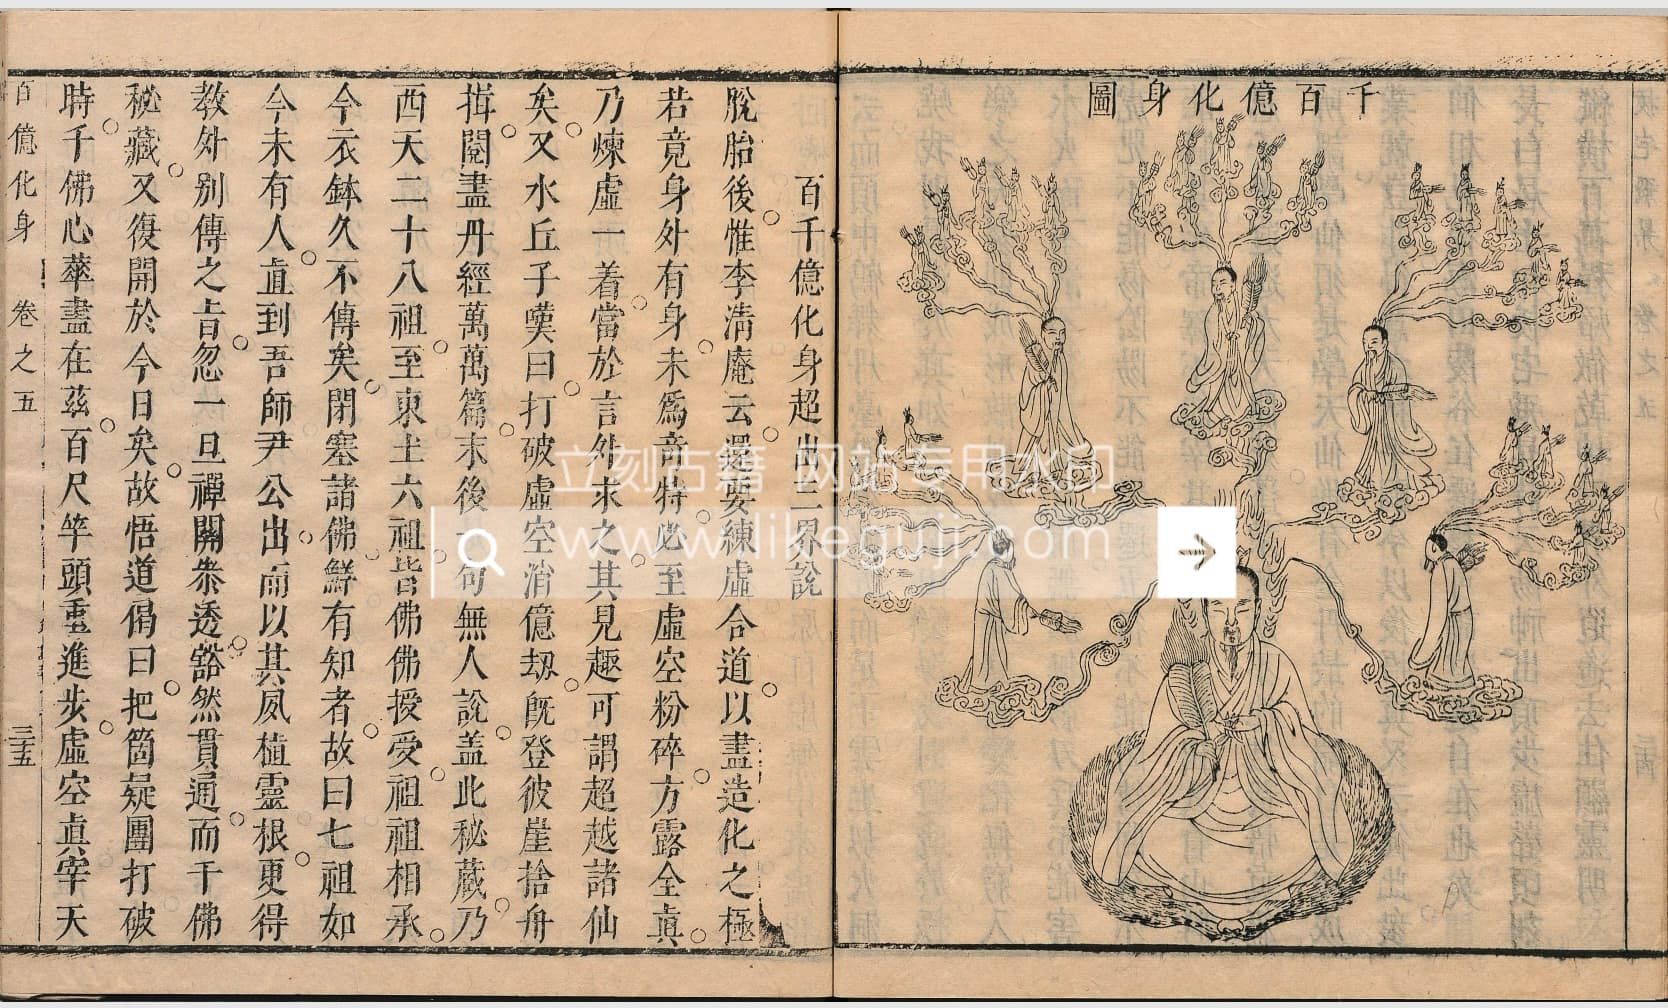 千百億化身圖
百千億化身超出三界說
脫胎後惟李淸庵云還要練虛合道以盡造化之極
若竟身外有身未爲奇特必至虛空粉碎方露全眞
乃煉虛一着當於言外求之其見趣可謂超越諸仙
矣又水丘子嘆曰打破虛空消億刼旣登彼崖捨舟
揖閱盡丹經萬萬篇末後一句無人說盖此秘藏乃
西天二十八祖至東土六祖皆佛佛授受祖祖相承
今衣鉢久不傳矣閉塞諸佛鮮有知者故曰七祖如
今未有人直到吾師尹公出而以其夙植靈根更得
敎外別傳之旨忽一旦禪關叅透豁然貫通而千佛
秘藏又復開於今日矣故悟道偈曰把箇疑團打破
時千佛心華盡在茲百尺竿頭重進步虛空眞宰天
百億化身 卷之五 三十五
立刻古籍 网站专用水印
www.likeguji.com